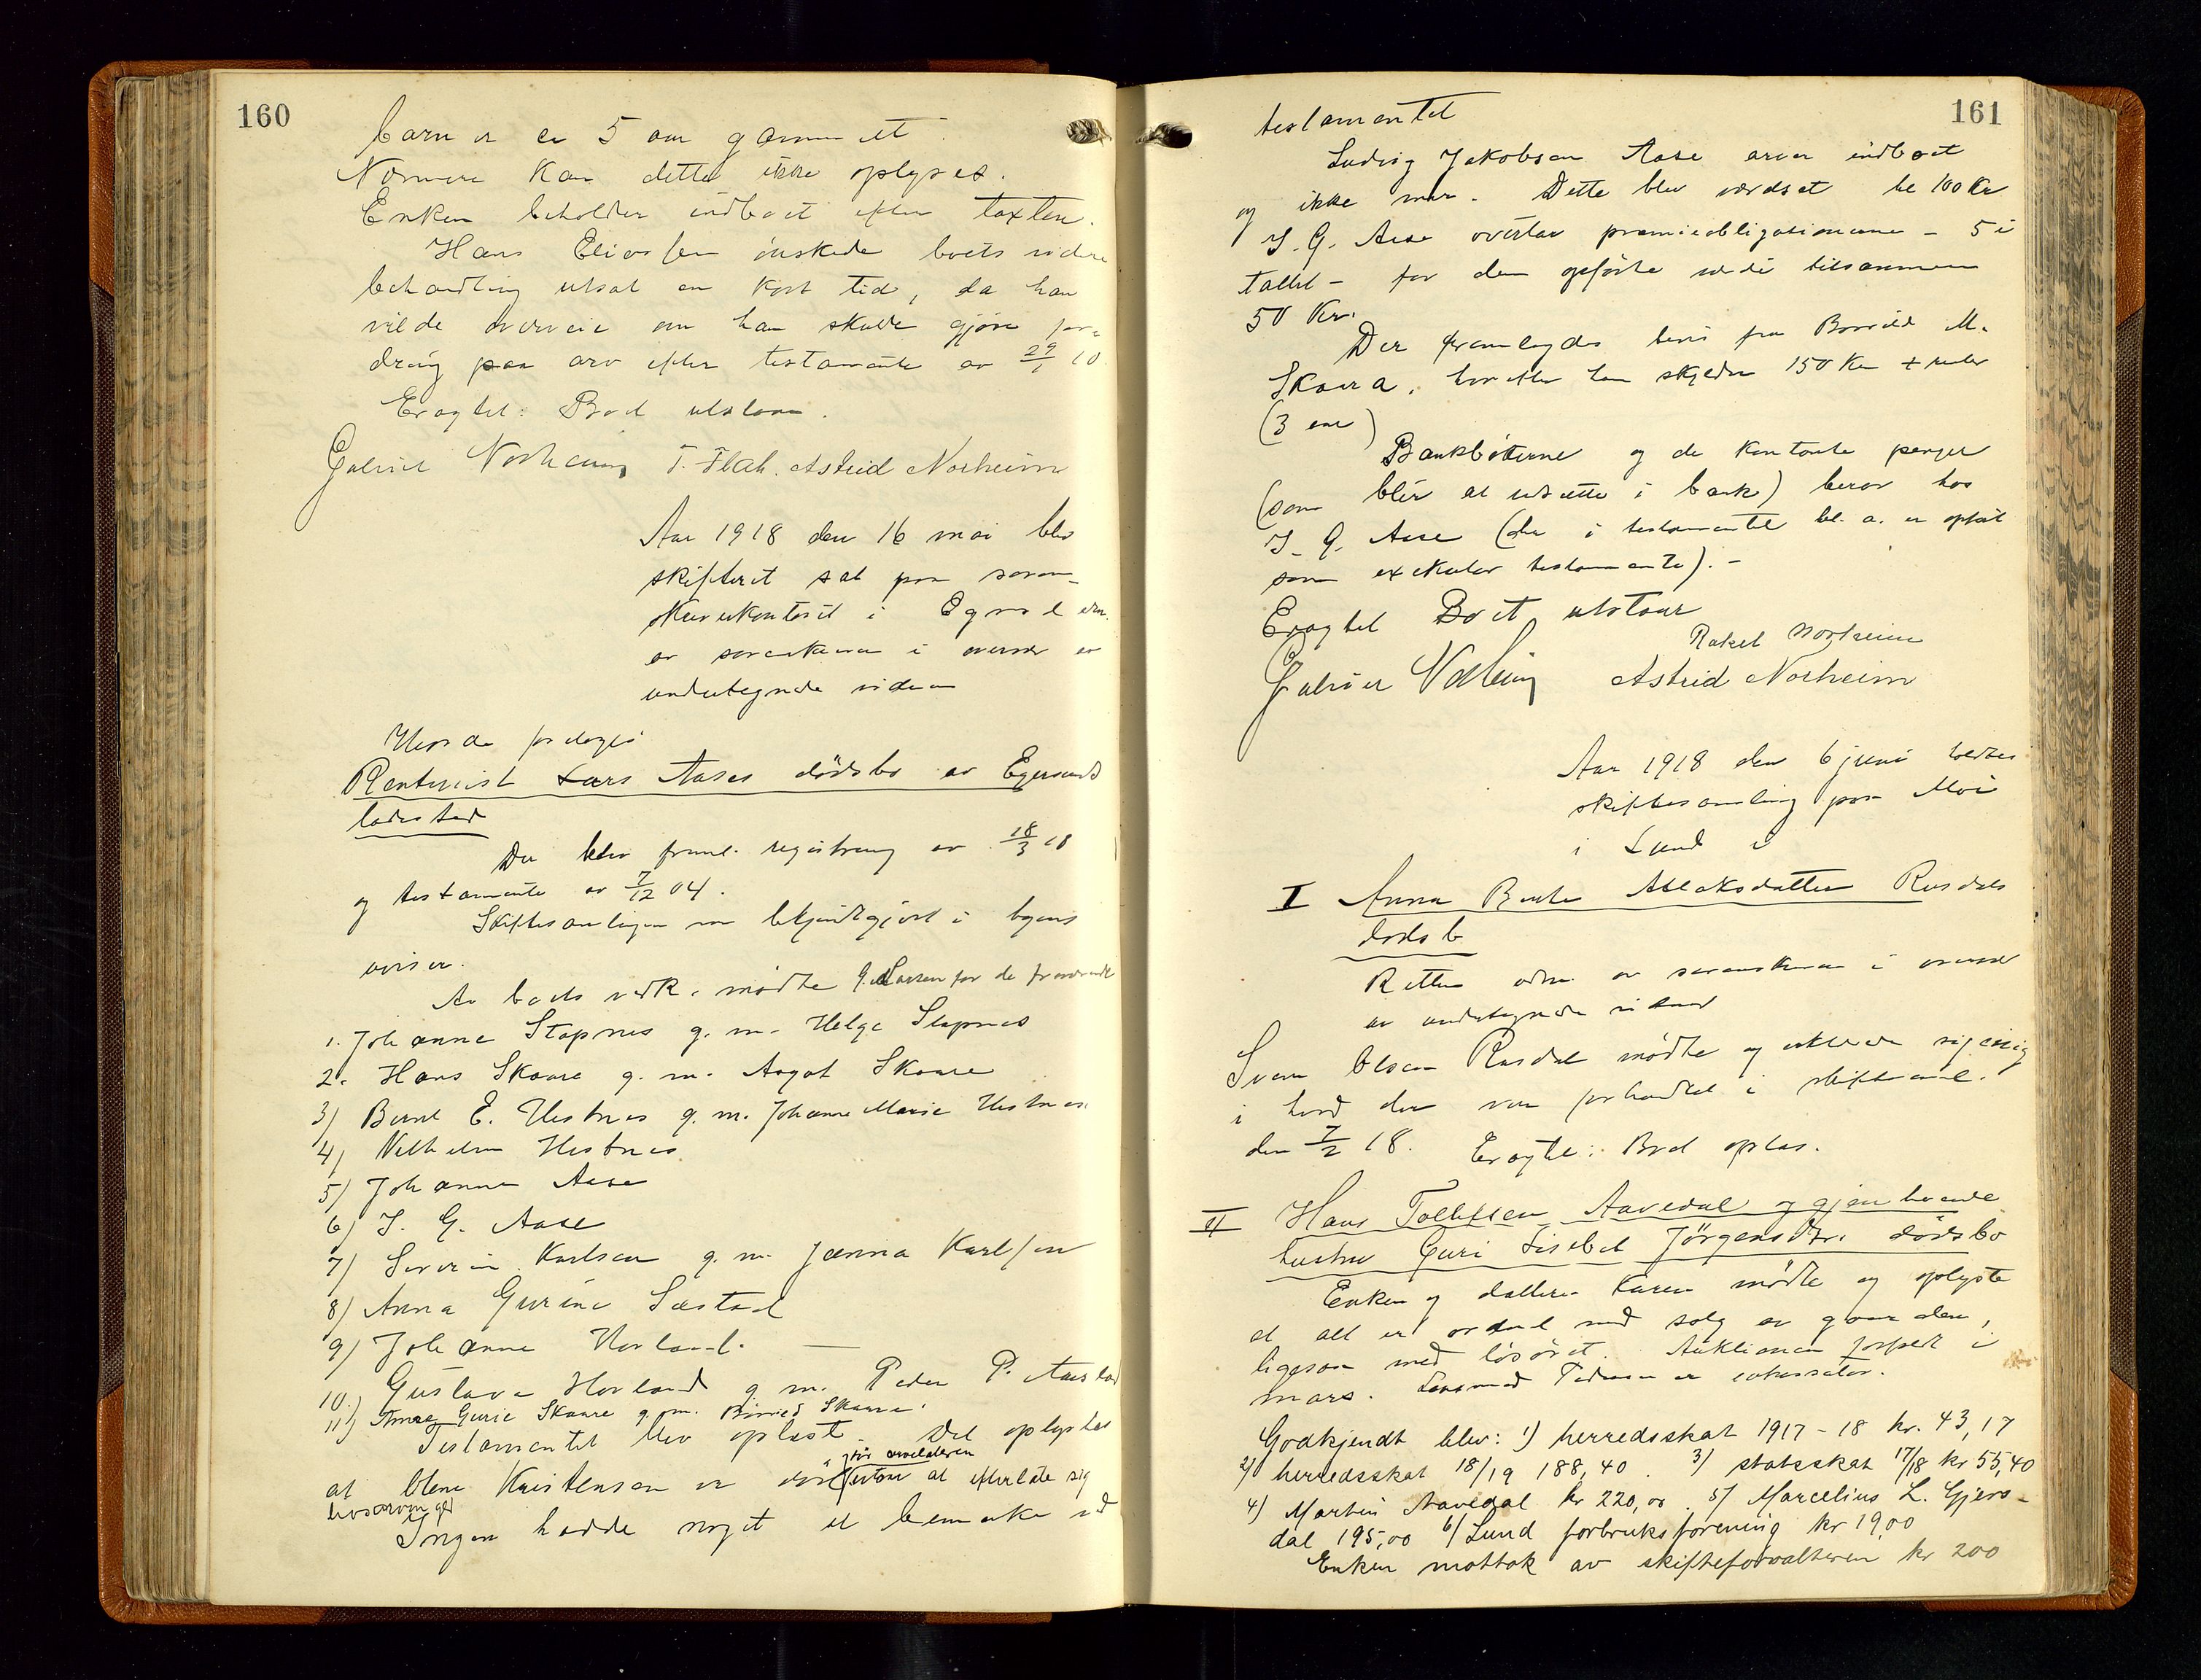 160
barn er ca 5 aar gammelt.
Nærmere kan dette ikke oplyses.
Enken beholder indboet efter taxten.
Hans Eliassen ønskede boets videre
behandling utsat en kort tid, da han
vilde overveie om han skulde gjøre for-
dring paa arv efter testamente av 29/1 10.
Eragtet: Boet utstaar.
Gabriel Norheim T. Flah. Astrid Norheim
Aar 1918 den 16 mai blev
skifteret sat paa soren-
skriverkontoret i Egersund
av sorenskriveren i overvær av
undertegnede vidner
Hvorda foretoges
Rentenist Lars Aases dødsbo av Egersunds
ladested
Der blev freml. registrering av 18/3 18
og testamente av 7/12 04.
Skiftesamlingen var bekjendtgjort i byens
aviser.
Av boets vedk. mødte G. Larsen for de fraværende
1. Johanne Stapnes g. m. Helge Stapnes
2. Hans Skaare g. m. Aagot Skaare
3) Bernt E. Hestnes g. m. Johanne Marie Hestnes
4) Vilhelm Hestnes
5) Johanne Aase
6) I. G. Aase
7) Severin Karlsen g. m. Janna Karlsen
8) Anna Gurine Sæstad
9) Johanne Hovland. —
10) Gustava Hovland g. m. Peder P. Aarstad
11) Anne Gurie Skaare g. m. Børild Skaare.
Testamentet blev oplæst. Det oplystes
før arveladeren
at Olene Kristensen er død uten at efterlate sig
livsarvinger
Ingen hadde noget at bemerke ved
161
testamentet
Ludvig Jakobsen Aase arver indboet
og ikke mer. Dette blev værdsat til 100 Kr
I. G. Aase overtar præmieobligationerne - 5 i
tallet - for den opførte værdi tilsammen
50 Kr.
Der fremlagdes bevis fra Børild M.
Skaara, hvorefter han skylder 150 Kr + renter
(3 aar)
Bankbøkerne og de kontante penger
(som blir at indsætte i bank) beror hos
I. G. Aase (der i testamentet bl. a. er opført
som exekutor testamente). -
Eragtet Boet utstaar
Rakel Norheim
Gabriel Norheim Astrid Norheim
Aar 1918 den 6 juni holdtes
skiftesamling paa Moi
i Lund i
I Anna Berte Aslaksdatter Rusdals
dødsbo
Retten adm. av sorenskriveren i overvær
av undertegnede vidner
Sven Olsen Rusdal mødte og erklærte sig enig
i hvad der var forhandlet i skiftesaml.
den 7/2 18. Eragtet: Boet opløs.
II Hans Tollefsen Aavedal og gjenlevende
hustru Guri Lisebet Jørgensdtr. dødsbo
Enken og datteren Karen mødte og oplyste
at alt er ordnet med salg av gaarden,
ligesaa med løsøret. Auktionen forfaldt i
mars. Lensmand Pedersen er inkassator.
Godkjendt blev: 1) herredsskat 1917-18 kr. 43,17
2) herredsskat 18/19 188,40. 3) statsskat 17/18 kr 55,40
4) Martin Aavedal kr 220,00. 5) Marcelius L. Gjers-
dal 195,00 6) Lund forbruksforening kr 19,00
Enken mottok av skifteforvalteren kr 200